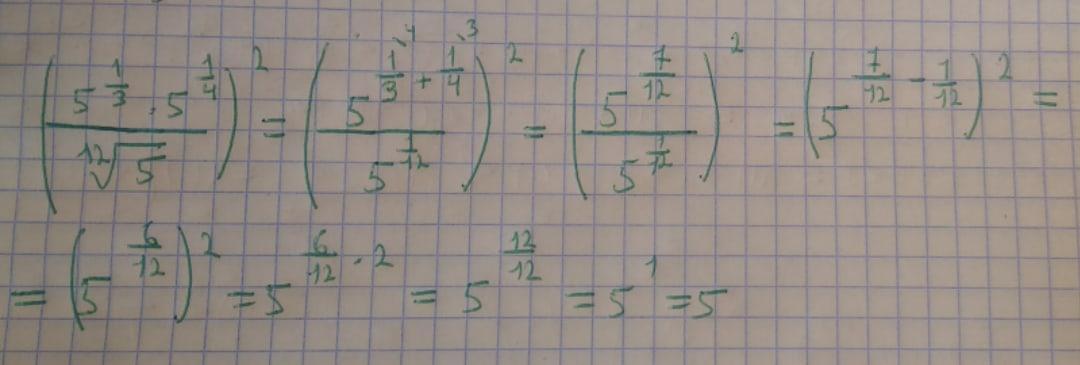 (5^(1/3) · 5^(1/4) / ¹²√5)² = (5^(1/3 ^\4 + 1/4 ^\3) / 5^(1/12))² = (5^(7/12) / 5^(1/12))² = (5^(7/12 - 1/12))² =
= (5^(6/12))² = 5^(6/12 · 2) = 5^(12/12) = 5^1 = 5